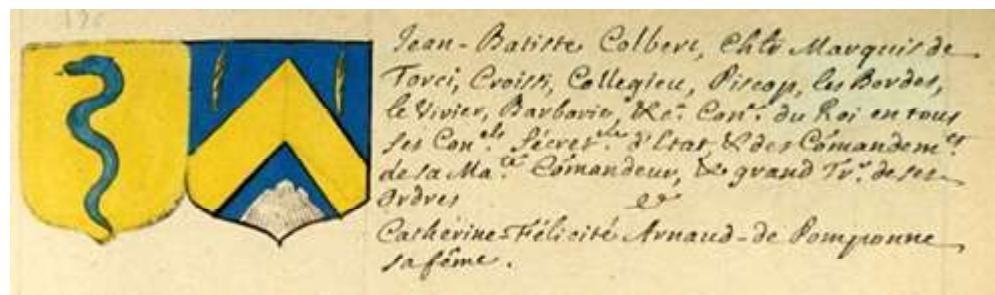 Jean-Batiste Colbert, Chlr Marquis de
Torci, Croissi, Collegieu, Piscop, les Bordes,
le Vivier, Barbarie, &c. Con.er du Roi en tous
ses Con.els Sécret.re d'Etat, & des Cõmandem.ts
de sa Ma.té Cõmandeur, & grand Tr.r de ses
Ordres
&
Cathérine-Félicité Arnaud-de Pomponne
sa fõme.